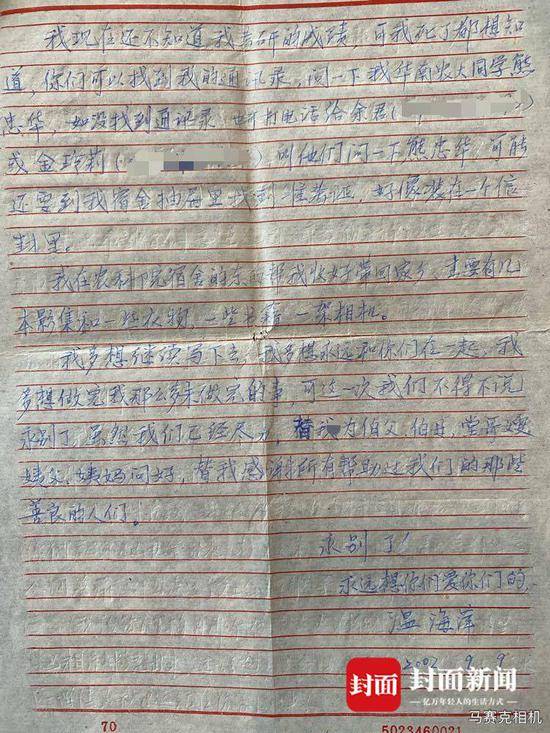 我现在还不知道我考研的成绩，可我死了都想知
道，你们可以找到我的通讯录，问一下我华南农大同学熊
忠华，如没找到通讯录，也可打电话给余君(
或金玲莉( )叫他们问一下熊忠华，可能
还要到我宿舍抽屉里找到准考证，好像装在一个信
封里。
我在农科院宿舍的东西帮我收好带回家乡，主要有几
本影集和一些衣物，一些书籍，一架相机。
我多想继续写下去，我多想永远和你们在一起，我
多想做完我那么多未做完的事，可这一次我们不得不说
永别了，虽然我们已经尽力，替我为伯父、伯母，堂哥嫂
姨父、姨妈问好，替我感谢所有帮助过我们的那些
善良的人们。
永别了！
永远想你们爱你们的，
温海萍
2002.9.9
封面 封面新闻
亿万年轻人的生活方式
70 5023460021
马赛克相机